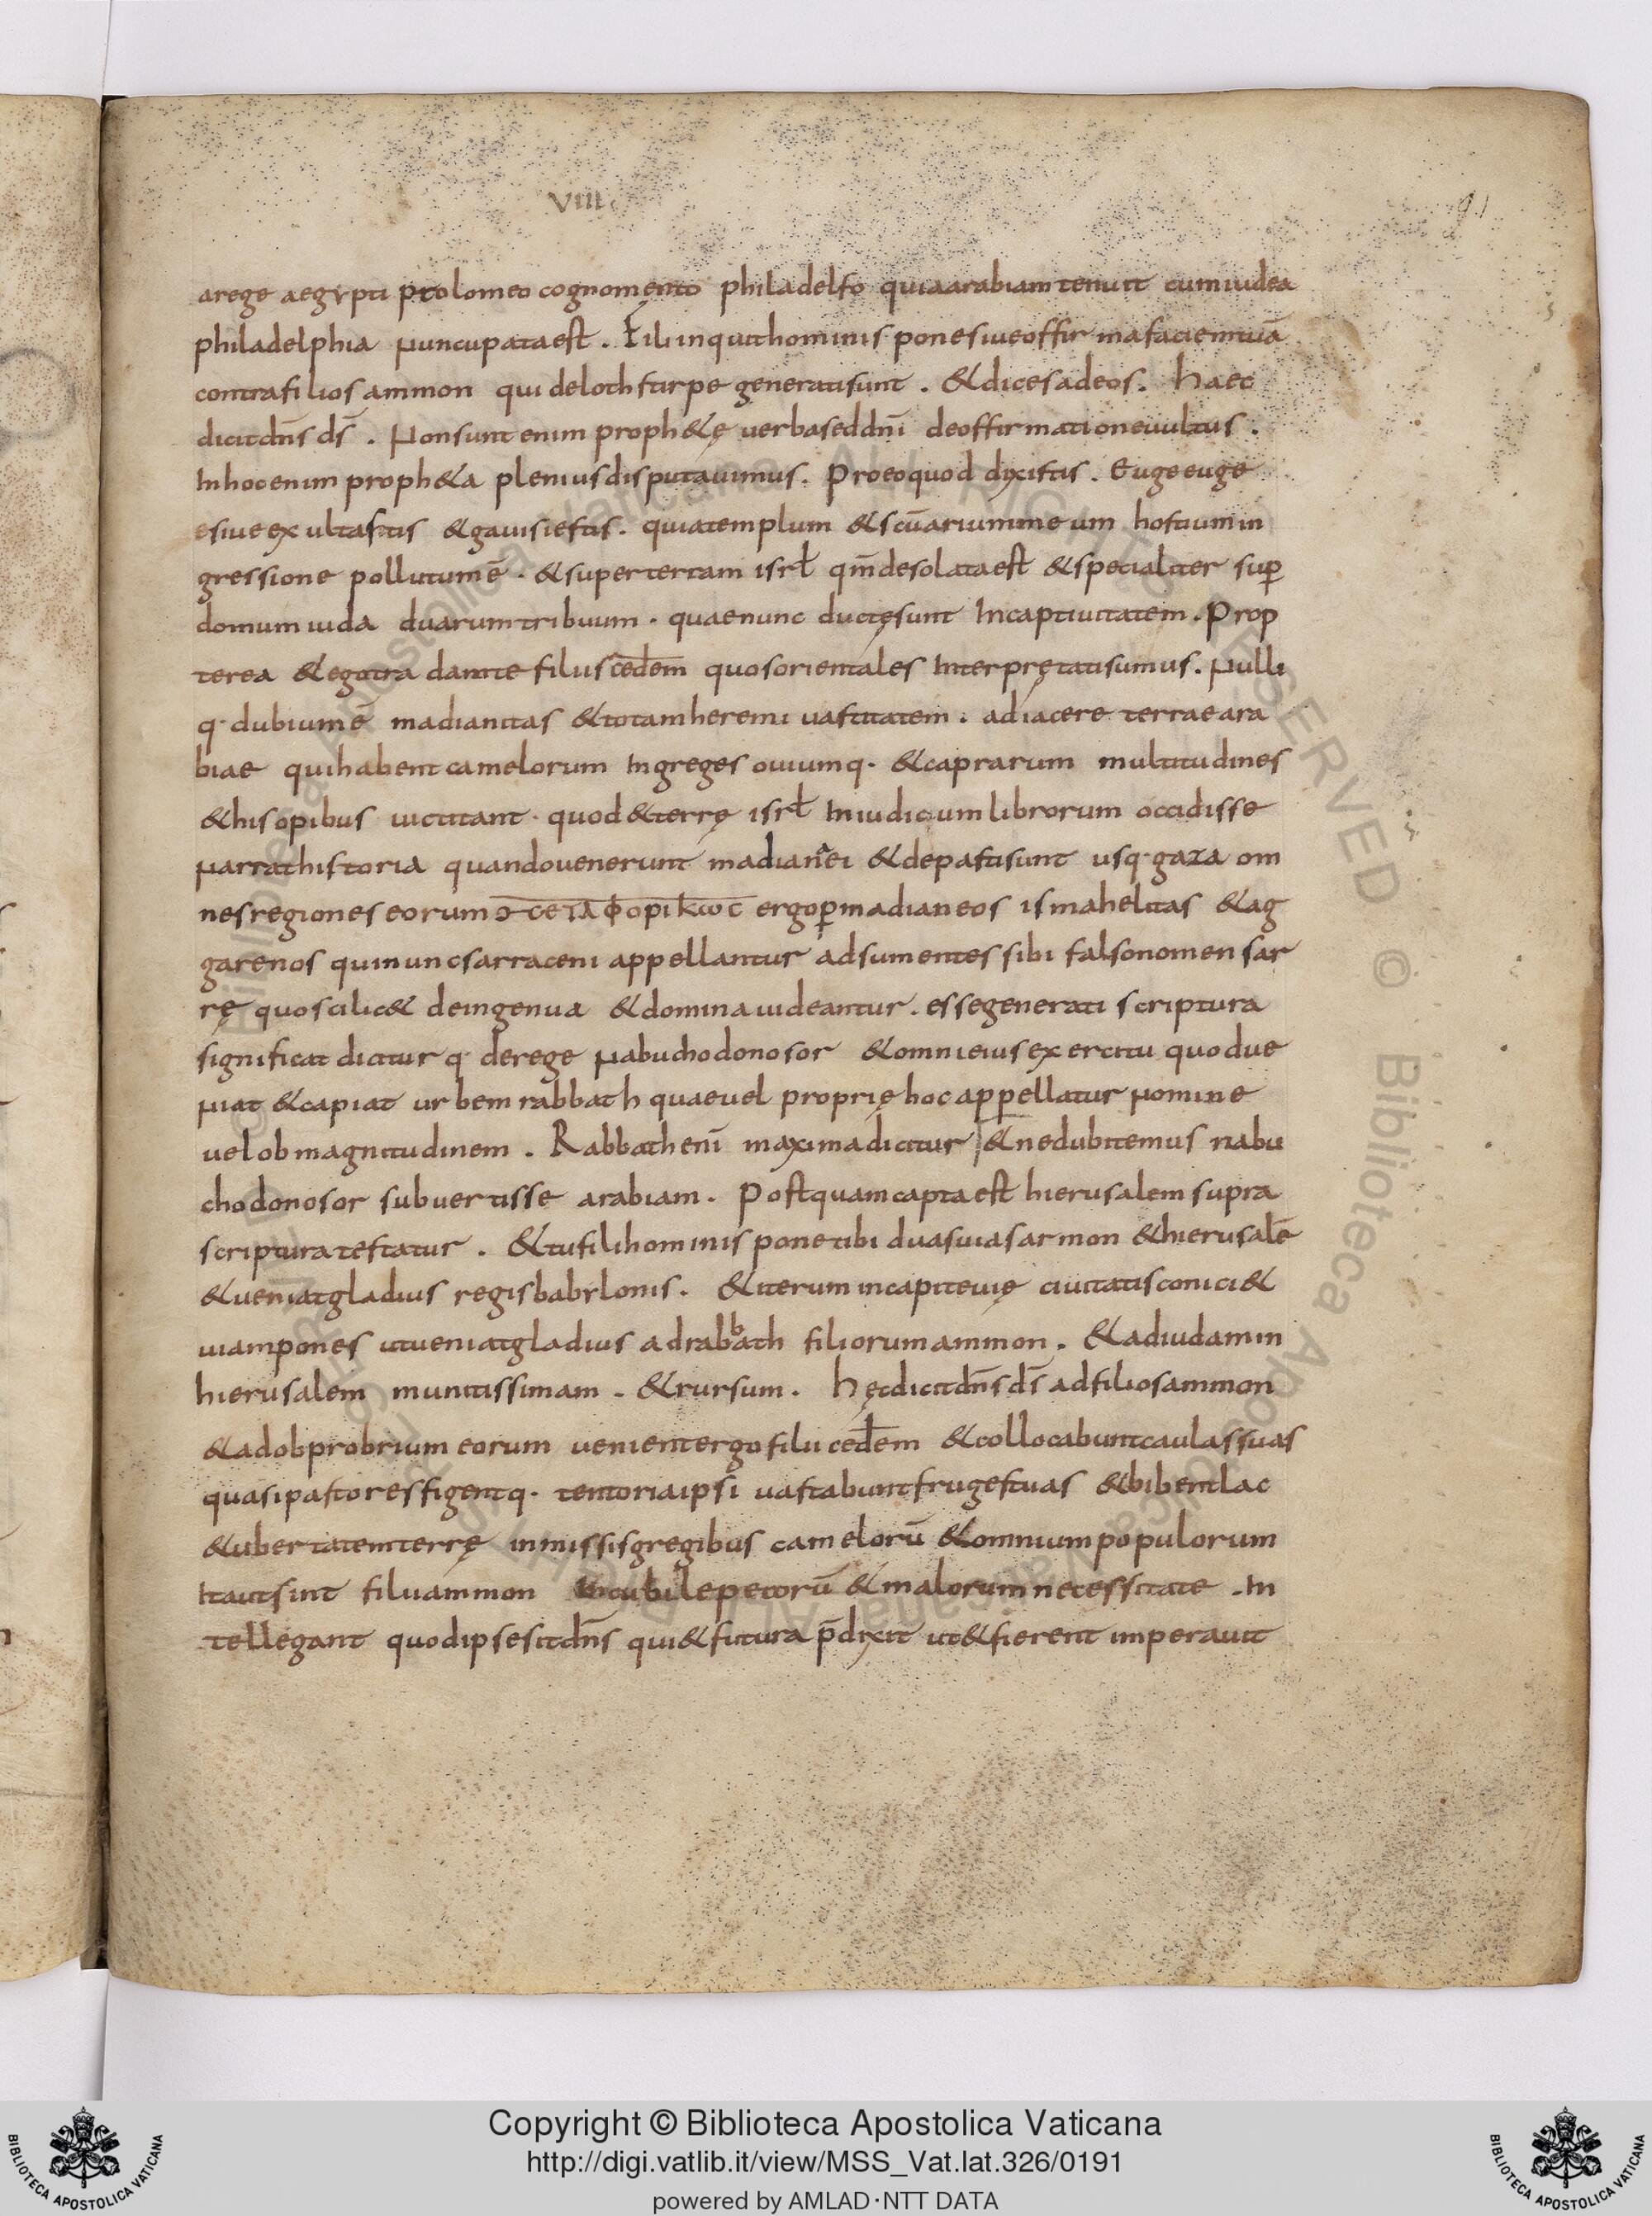 VIII.
91
arege aegypti ptolomeo cognomento philadelfo quia arabiam tenuit cum iudea
philadelphia nuncupata est. Fili inquit hominis pone siue offirma faciem tuā
contra filios ammon qui de loth stirpe generati sunt. & dices ad eos. Haec
dicit dn̄s ds̄. Non sunt enim proph&ę uerba sed dn̄i de offirmatione uultus.
In hoc enim proph&a plenius disputauimus. Pro eo quod dixistis. Euge euge
e siue exultastis & gauisi estis. quia templum & scūarium meum hostium in
gressione pollutum ē. & super terram isrł qm̄ desolata est & specialiter suꝑ
domum iuda duarum tribuum. quae nunc ductę sunt In captiuitatem. Prop
terea & ego tradam te filiis cedem quos orientales Interpretati sumus. Nulli
q· dubium ē madianitas & totam heremi uastitatem. adiacere terrae ara
biae qui habent camelorum In greges ouium q· & caprarum multitudines
& his opibus uictitant. quod & terrę isrł In iudicum librorum accidisse
narrat historia quando uenerunt madianei & depasti sunt usq· gaza om
nes regiones eorum ϲε ιλ φορικωϲ ergo ꝑ madianeos ismahelitas & ag
garenos qui nunc sarraceni appellantur adsumentes sibi falso nomen sar
rę quo scilic& de ingenua & domina uideantur. esse generati scriptura
significat dicitur q· de rege nabuchodonosor & omni eius exercitu quod ue
niat & capiat urbem rabbath quae uel proprię hoc appellatur nomine
uel ob magnitudinem. Rabbath enī maxima dicitur & ne dubitemus nabu
chodonosor subuertisse arabiam. Postquam capta est hierusalem supra
scriptura testatur. & tu fili hominis pone tibi duas uias armon & hierusalē
& ueniat gladius regis babylonis. & iterum in capite uię ciuitatis conici&
uiam pones ut ueniat gladius ad rabbath filiorum ammon. & ad iudam in
hierusalem munitissimam. & rursum. Hęc dicit dn̄s ds̄ ad filios ammon
& ad obprobrium eorum uenient ergo filii cedem & collocabunt caulas suas
quasi pastores figent q· tentoria ipsi uastabunt fruges tuas & bibent lac
& ubertatem terrę inmissis gregibus camelorū & omnium populorum
Ita ut sint filii ammon In cubile pecorū & malorum necessitate. In
tellegant quod ipse sit dn̄s qui & futura p̄dixit ut & fierent imperauit
Copyright © Biblioteca Apostolica Vaticana
http://digi.vatlib.it/view/MSS_Vat.lat.326/0191
powered by AMLAD·NTT DATA
BIBLIOTECA APOSTOLICA VATICANA
BIBLIOTECA APOSTOLICA VATICANA